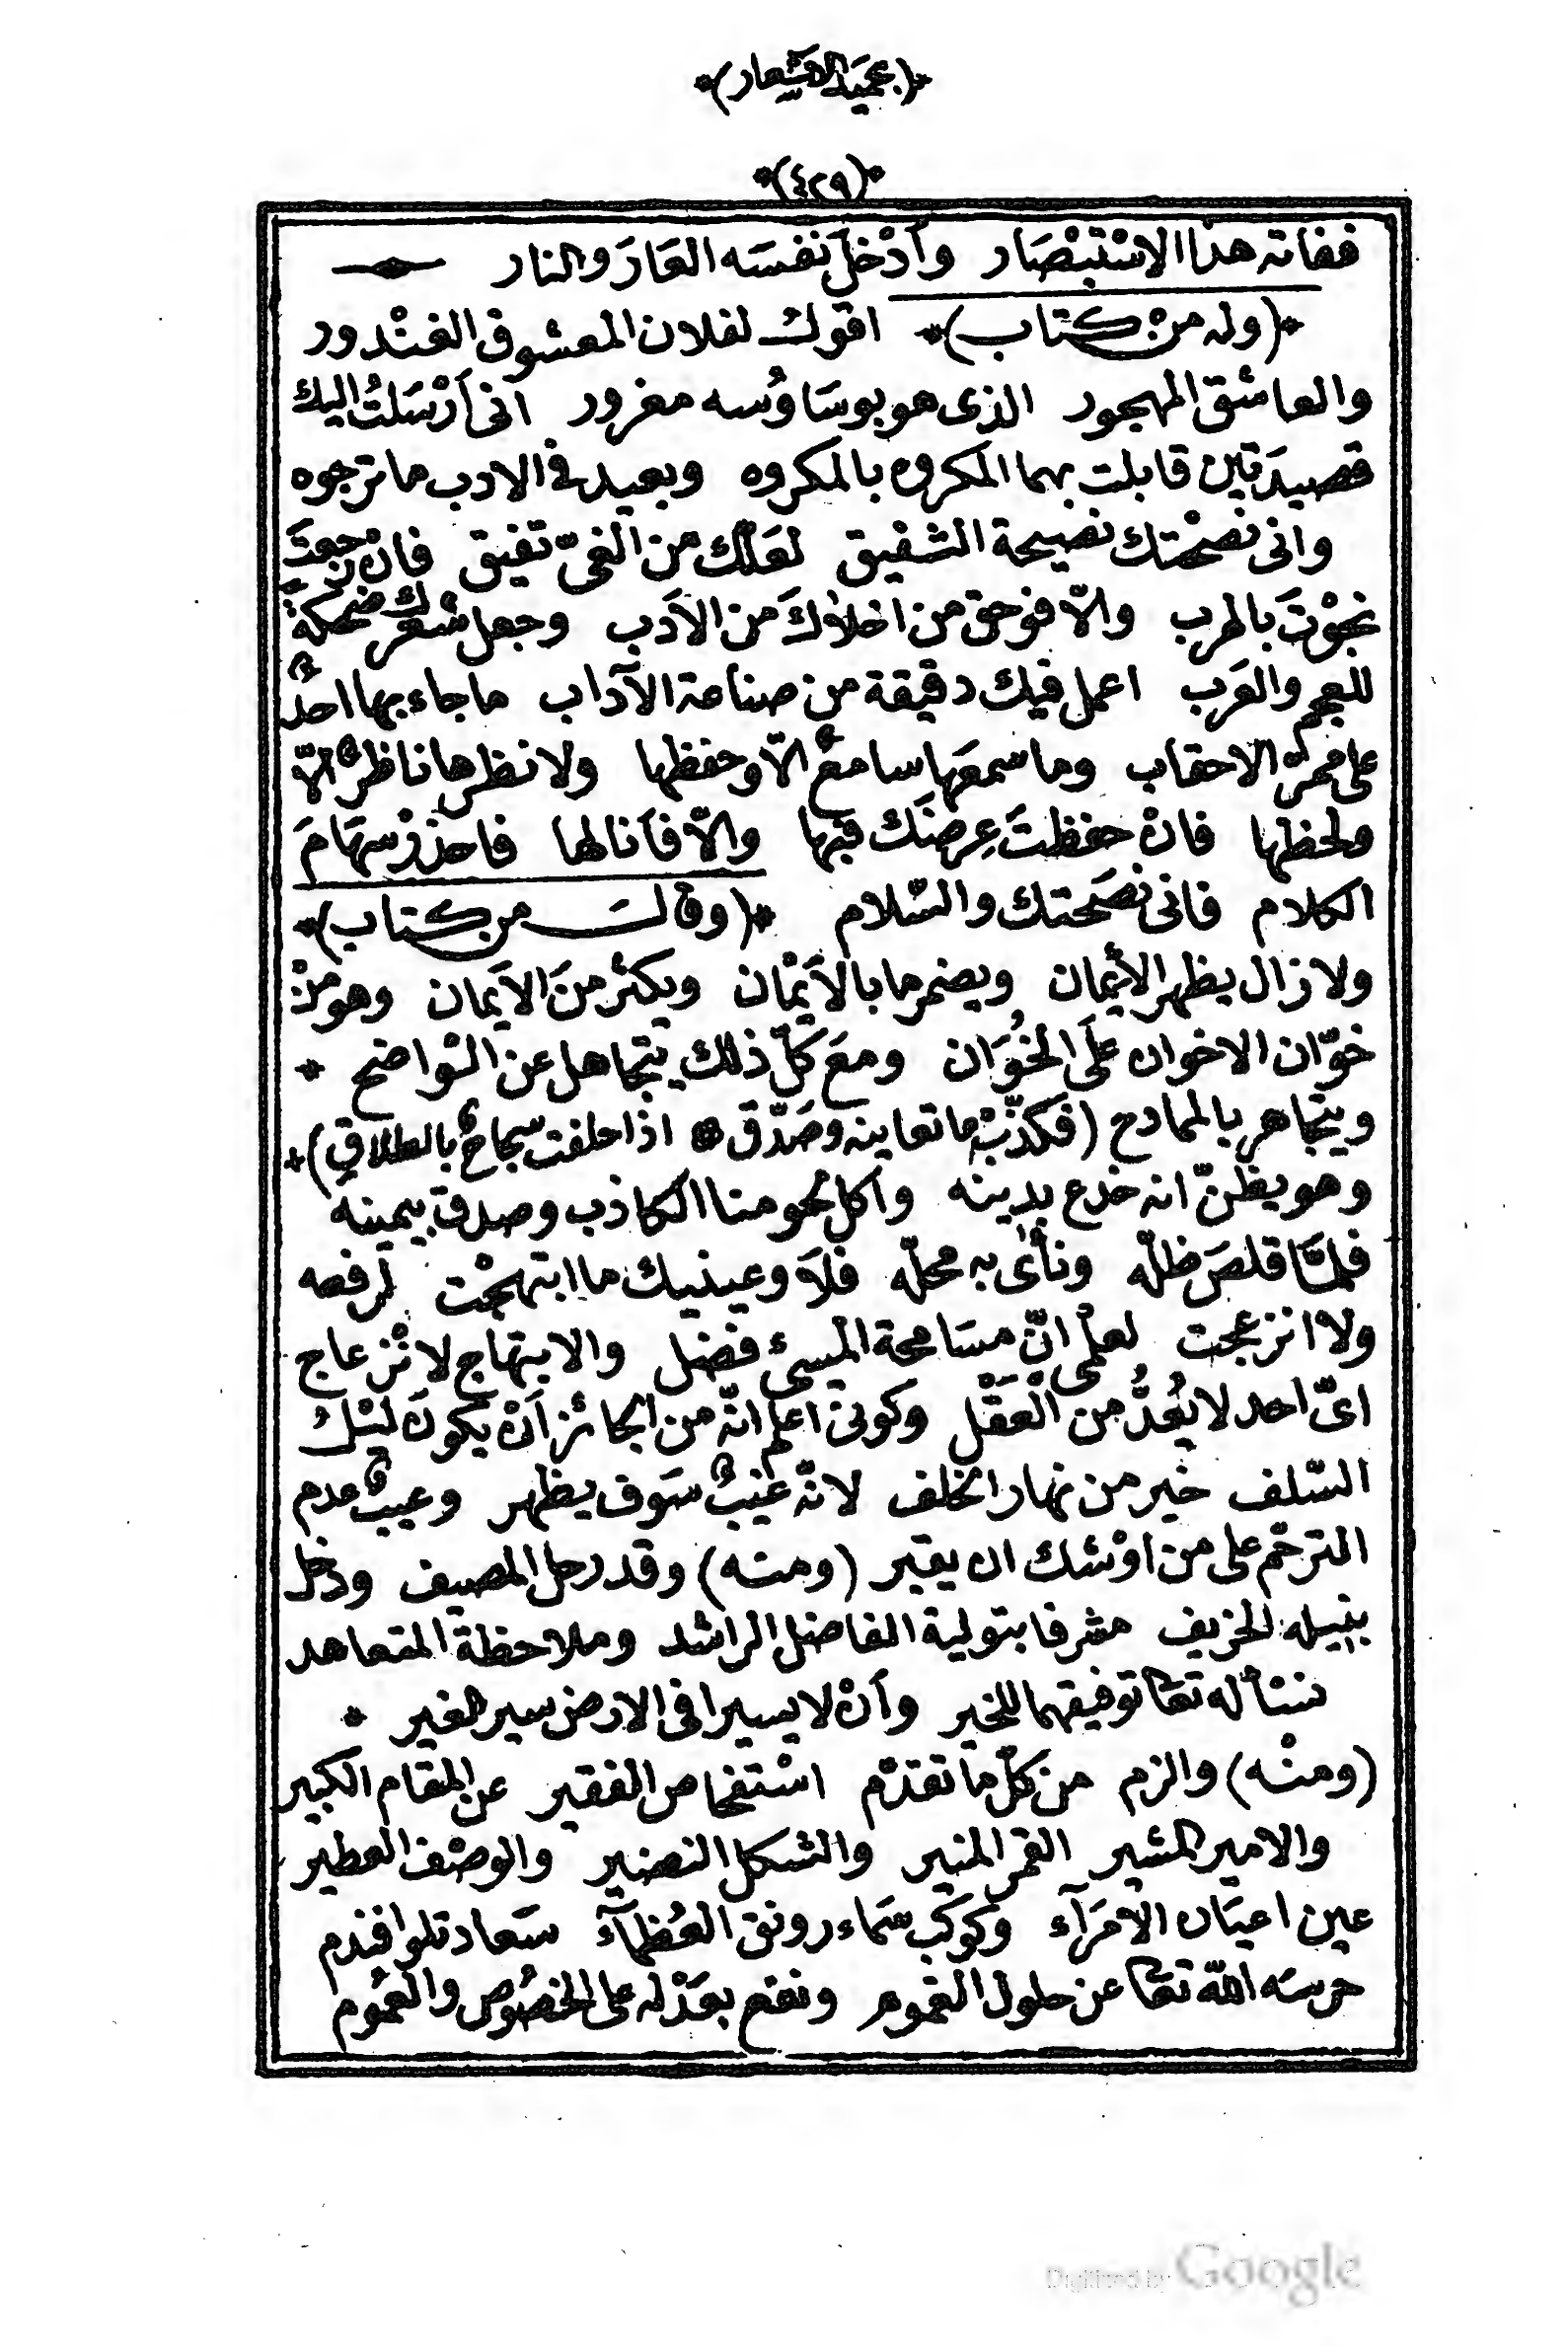 ﴿عجيبة الاشعار﴾
﴿٤٢٩﴾
ففاته هذا الاسْتبْصَار وأدْخلَ نفسَه العَارَ والنار
﴿وله منْ كتاب﴾ اقول لفلان المعشوق الغنْدور
والعاشق المهجور الذى هو بوسَاوُسه مغرور انى أرْسَلتُ اليك
قصيدَتين قابلت بهما المكروه بالمكروه وبعيد فى الادب ما ترجوه
وانى نصحْتك نصيحة الشفيق لعَلّك من الغىّ تفيق فانْ رجعتَ
نجوْتَ بالهرب والّا فوحق من اخلاكَ من الأدَب وجعل شعْرك ضحكةً
للعجم والعَرب اعمل فيك دقيقة من صناعة الآداب ما جاء بها احدٌ
على ممرّ الاحقاب وما سمعَها سامعٌ الّا وحفظها ولا نظرها ناظرٌ الّا
ولحظها فانْ حفظتَ عِرضَك فبها والّا فأنا لها فاحذرْ سهَامَ
الكلام فانى نصَحتك والسّلام ﴿وقالَ من كتاب﴾
ولا زال يظهر الأيمان ويضمر ما بالأيْمْان ويكثر منَ الأيمان وهو منْ
خوّان الاخوان علَى الخُوَان ومعَ كلّ ذلك يتجاهل عن الوّاضح *
ويتجاهر بالمادح (فكذّبْ ما تعاينه وصَدّق * اذا حلفت سجاحٌ بالطلاقِ) *
وهو يظنّ انه خدع بدينه واكل لحومنا الكاذب وصدق بيمينه
فلمّا قلصَ ظلّه ونأى به محلّه فلَا وعينيك ما ابتهجْت لرفعه
ولا انزعجت لعلمى انّ مسَامحة المسىء فضل والابتهاج لانْزعاج
اىّ احد لا يُعدُّ من الْعَقْل وكونى اعلم انّه من الجائز أنْ يكونَ ليْل
السّلف خير من نهار الخلف لانّه غيبٌ سَوف يظهر وعيبٌ عدم
الترحّم على من اوْشك ان يقبر (ومنه) وقد رحل المصيف ودخل
بنبيله الخريف مشرفا بتولية الفاضل الراشد وملاحظة المتعاهد
نسْأله تعا توفيقهما للخير وأنْ لا يسيرا فى الارض سير الغير *
(ومنْه) والزم من كلّ ما تقدّم اسْتفحاص الفقير عن المقام الكبير
والامير المشير القمر المنير والشكل النضير والوصْف العطير
عين اعيَان الأمَرآء وكوكب سَماء رونق العُظمآء سَعادتلو افندم
حرسَه اللّه تعَا عن حلول الغموم ونفع بعَدْله على الخصُوص والعُموم